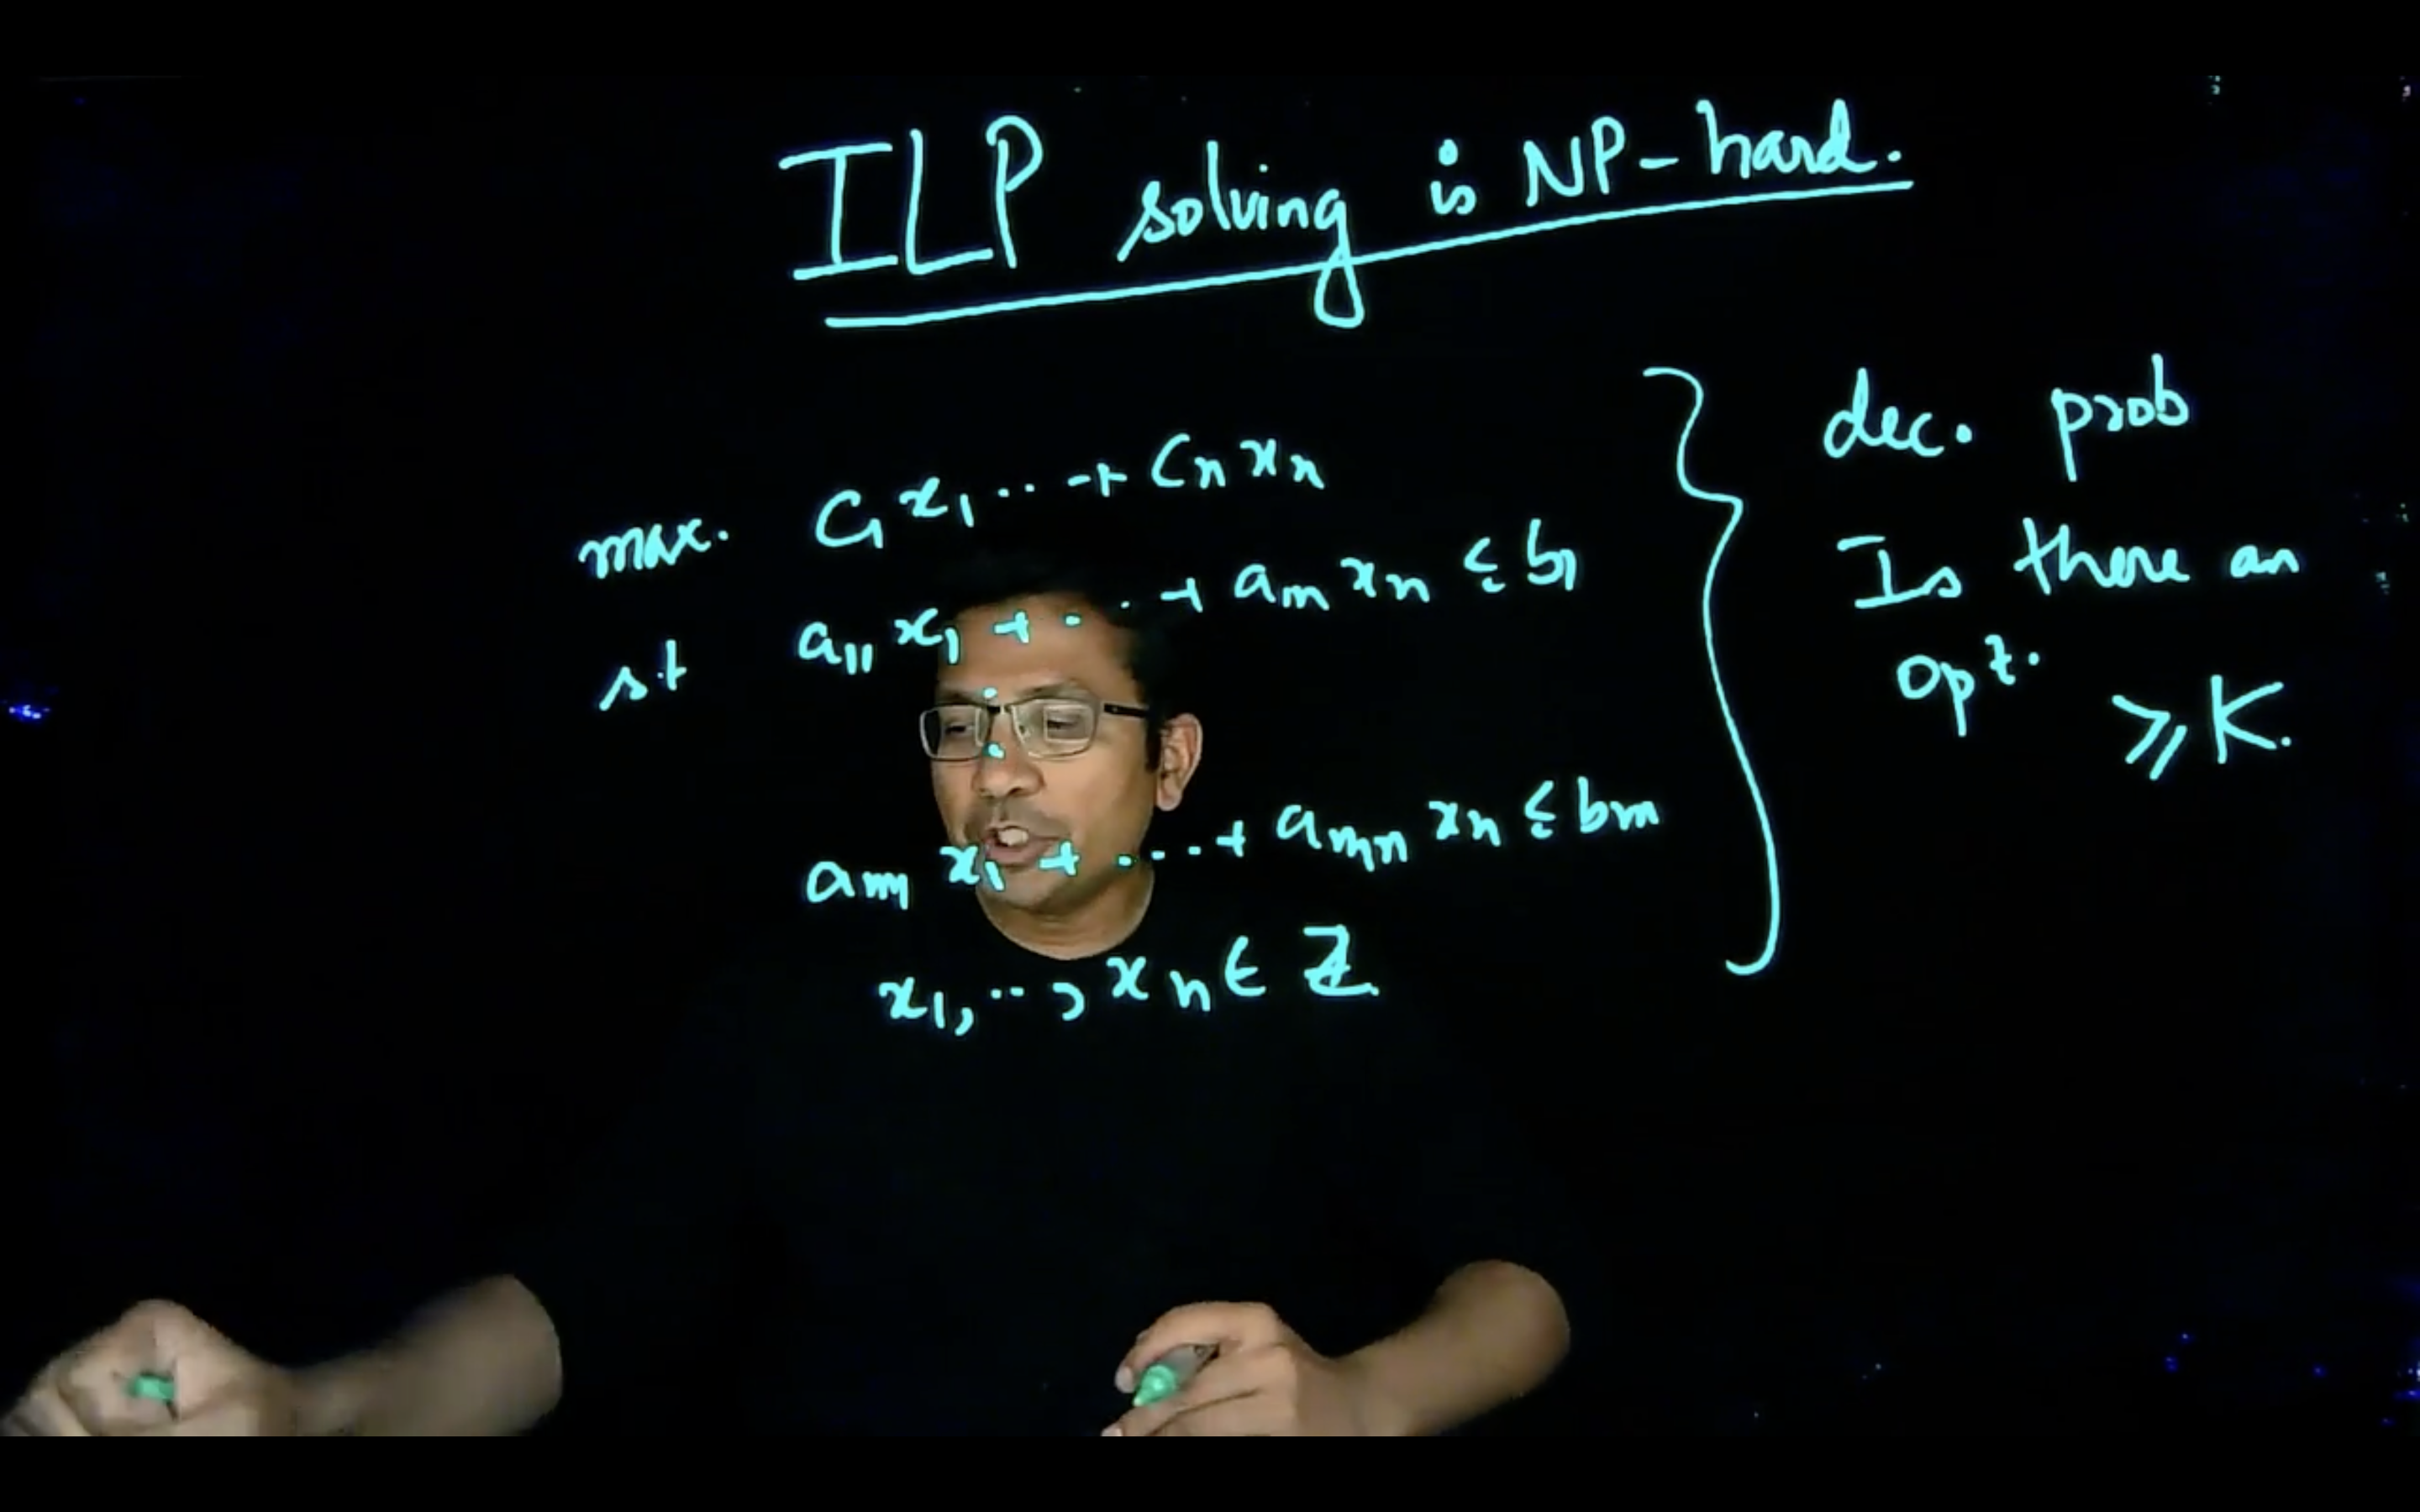 ILP solving is NP-hard.
max. C₁x₁ ... + Cₙxₙ
s.t a₁₁x₁ + ... + a₁ₙxₙ ≤ b₁
⋮
aₘ₁x₁ + ... + aₘₙxₙ ≤ bₘ
x₁, .., xₙ ∈ ℤ
dec. prob
Is there an
opt. ⩾ K.